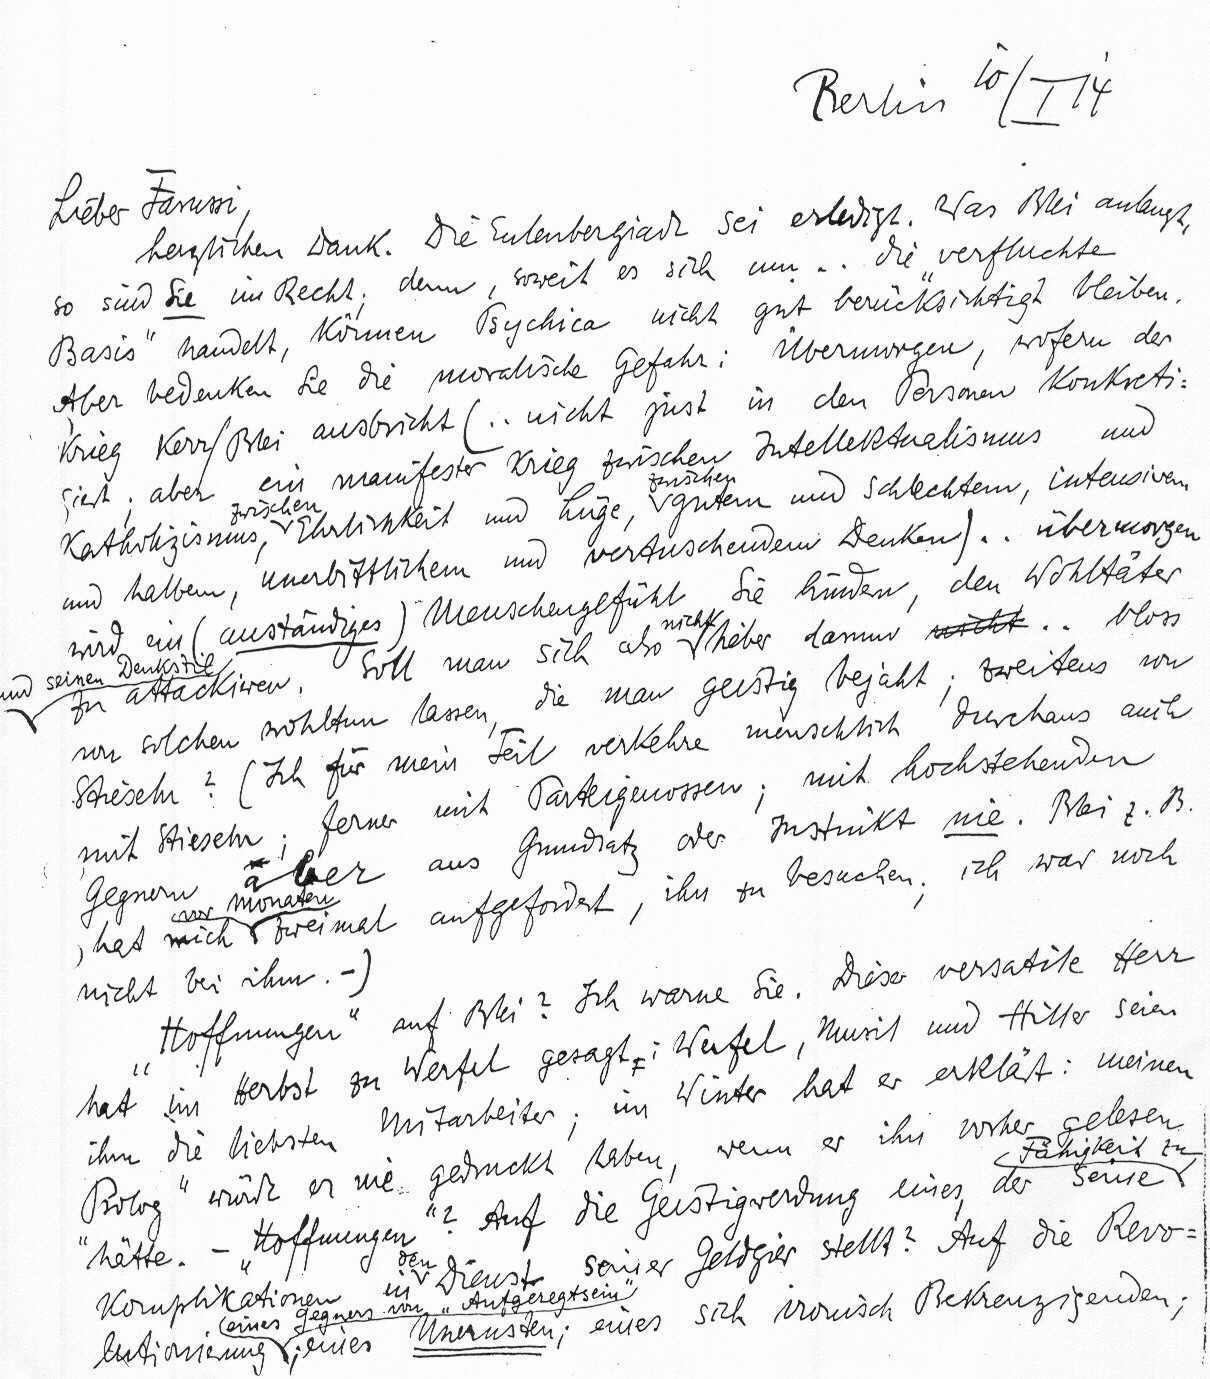 Berlin 10/I 14
Lieber Farussi,
herzlichen Dank. Die Eulenbergiade sei erledigt. Was Blei anlangt,
so sind Sie im Recht; denn, soweit es sich um .. die „verfluchte
Basis" handelt, können Psychica nicht gut berücksichtigt bleiben.
Aber bedenken Sie die moralische Gefahr: Übermorgen, wofern der
Krieg Kerr/Blei ausbricht (.. nicht just in den Personen Konkreti=
siert; aber ein manifester Krieg zwischen Intellektualismus und
Katholizismus, zwischen Ehrlichkeit und Lüge, zwischen gutem und schlechtem, intensivem
und halbem, unerbittlichem und vertuschendem Denken) .. übermorgen
wird ein (anständiges) Menschengefühl Sie hindern, den Wohltäter
und seinen Denkstil
zu attackieren. Soll man sich also nicht lieber darum nicht .. bloss
von solchen wohltun lassen, die man geistig bejaht; zweitens von
Stieseln? (Ich für mein Teil verkehre menschlich durchaus auch
mit Stieseln; ferner mit Parteigenossen; mit hochstehenden
Gegnern aber aus Grundsatz oder Instinkt nie. Blei z. B.
hat mich vor Monaten zweimal aufgefordert, ihn zu besuchen; ich war noch
nicht bei ihm. -)
„Hoffnungen" auf Blei? Ich warne Sie. Dieser versatile Herr
hat im Herbst zu Werfel gesagt: Werfel, Musil und Hiller seien
ihm die liebsten Mitarbeiter; im Winter hat er erklärt: meinen
„Prolog" würde er nie gedruckt haben, wenn er ihn vorher gelesen
hätte. - „Hoffnungen"? Auf die Geistigwerdung eines, der seine Fähigkeit zu
Komplikationen in den Dienst seiner Geldgier stellt? Auf die Revo=
lutionierung eines Gegners von „Aufgeregtsein"; eines Unernsten; eines sich ironisch Bekreuzigenden;